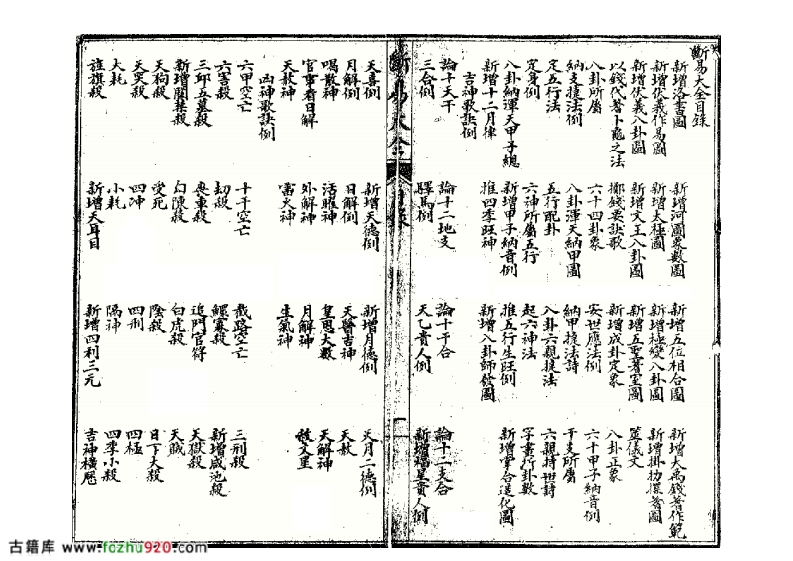 斷易大全目錄
新增洛書圖 新增河圖象數圖 新增五位相合圖 新增大禹錢著作範
新增伏羲作易圖 新增太極圖 新增極變八卦圖 新增掛扐揲蓍圖
新增伏羲八卦圖 新增文王八卦圖 新增五聖著室圖 筮儀文
以錢代蓍卜龜之法 擲錢要訣歌 新增成卦定象 八卦正象
八卦所屬 六十四卦象 安世應法例 六十甲子納音例
納支捷法例 八卦渾天納甲圖 納甲捷法詩 干支所屬
定五行法 五行配卦 八卦六親捷法 六親持世詩
定身例 六神所屬五行 起六神法 字畫行卦數
八卦納渾天甲子總 新增甲子納音例 推五行生旺例 新增掌合造化圖
新增十二月律 推四季旺神 新增八卦歸發圖
吉神歌訣例
論十天干 論十二地支 論十干合 論十二支合
三合例 驛馬例 天乙貴人例 新增福星貴人例
斷易大全 目錄 一
天喜例 新增天德例 新增月德例 天月二德例
月解例 日解例 天醫吉神 天赦
喝散神 活曜神 皇恩大赦 天解神
官事看日解 外解神 月解神 文星
天赦神 雷火神 生氣神
凶神歌訣例
六甲空亡 十干空亡 截路空亡 三刑殺
六害殺 劫殺 鰥寡殺 新增咸池殺
三邱五墓殺 喪車殺 追門官符 天獄殺
新增關隔殺 白陳殺 白虎殺 天賊
天狗殺 受死 陰殺 日下大殺
天哭殺 四沖 四刑 四極
大耗 小耗 隔神 四季小殺
旌旗殺 新增天耳目 新增四利三元 吉神橫歷
古籍库 www.fozhu920.com